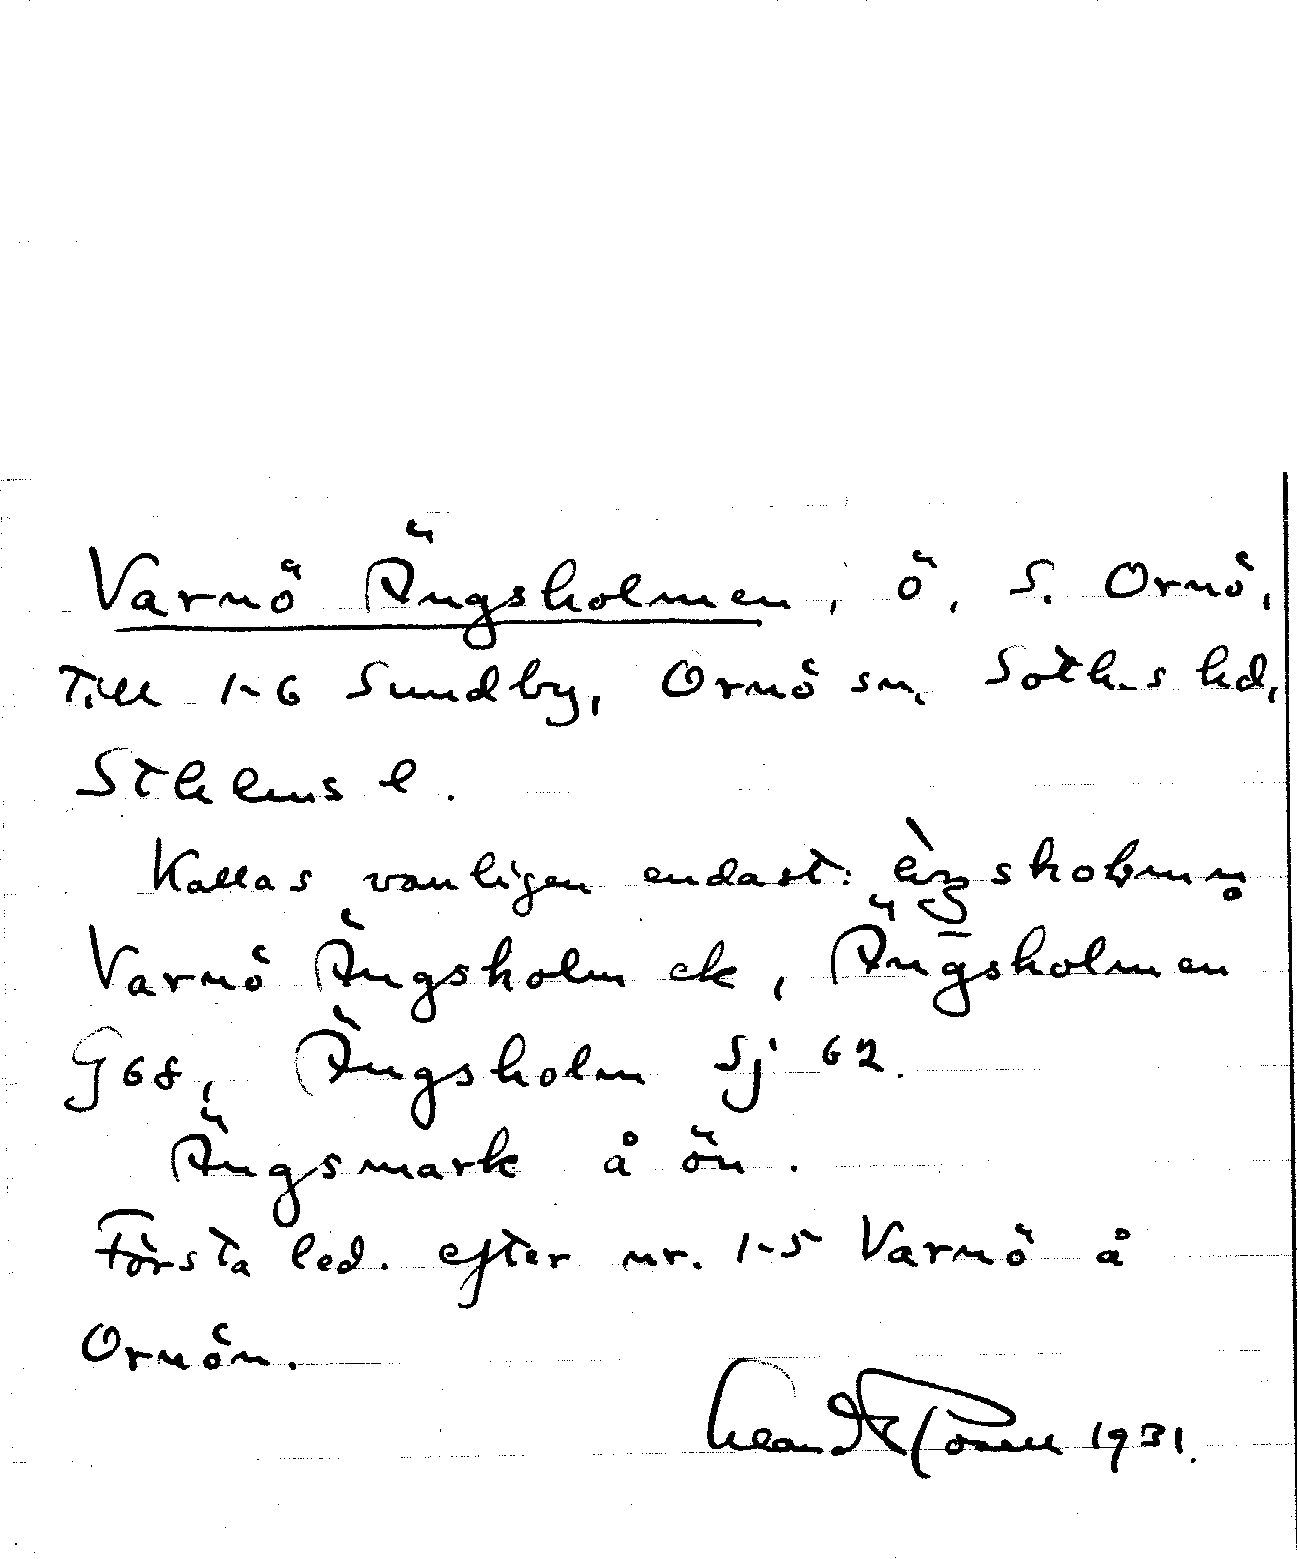 Varnö Ängsholmen, ö, S. Ornö,
Till 1-6 Sundby, Ornö sn, Sotholms hd,
Sthlms l.
Kallas vanligen endast:
Varnö Ängsholm ek, Ängsholmen
G 68, Ängsholm Sj 62.
Ängsmark å ön.
Första led. efter nr. 1-5 Varnö å
Ornön.
1931.